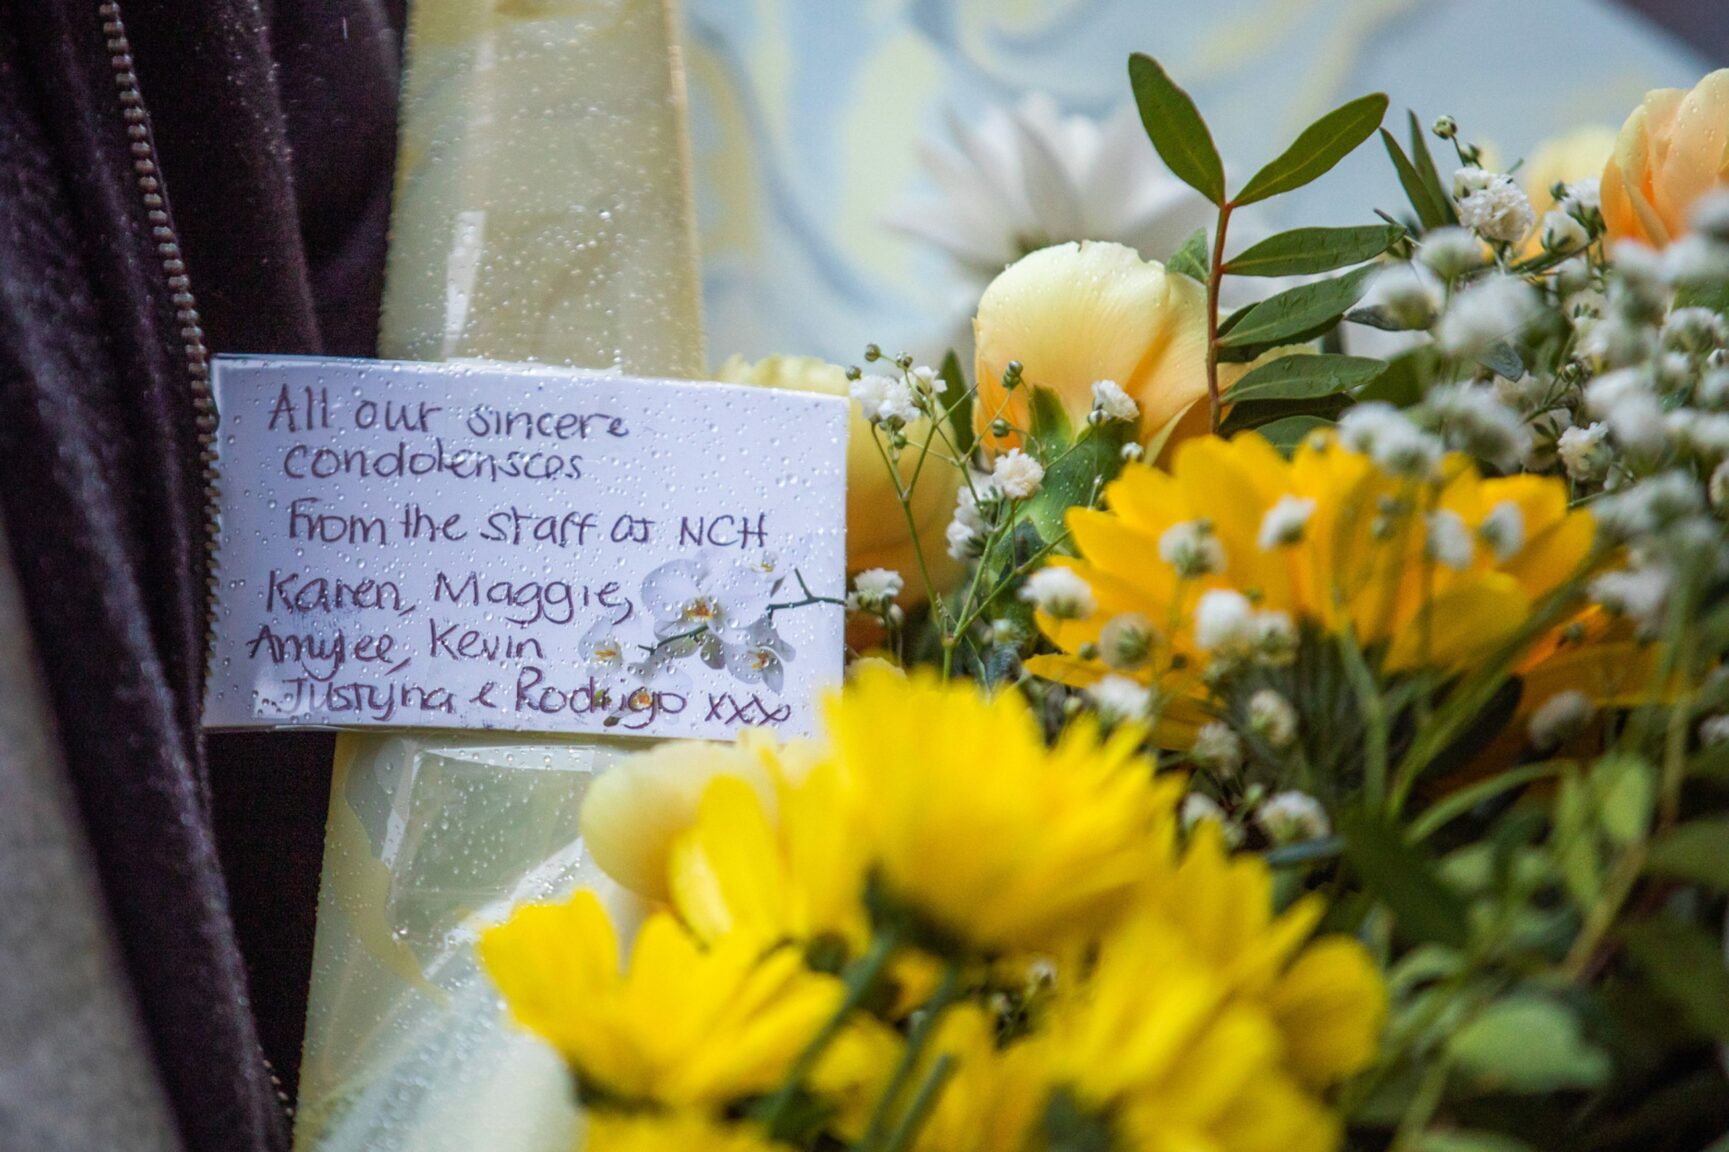 All our sincere
condolensces
From the staff at NCH
Karen, Maggie,
Amylee, Kevin
Justyna & Rodrigo xxx